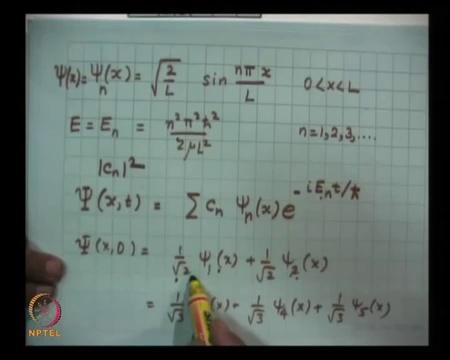 ψ(x)= ψn(x) = √(2/L) sin nπx/L 0<x<L
E = En = n²π²ħ²/2μL² n=1,2,3,....
|cn|²
Ψ(x,t) = Σ cn ψn(x) e^-iEnt/ħ
Ψ(x,0) = 1/√2 ψ1(x) + 1/√2 ψ2(x)
= 1/√3 (x) + 1/√3 ψ4(x) + 1/√3 ψ5(x)
NPTEL